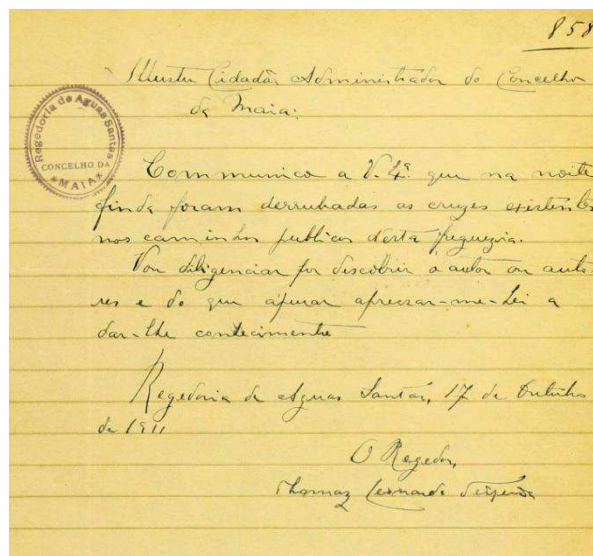 858
Illustre Cidadão Administrador do Concelho
da Maia:
Regedoria de Aguas Santas
CONCELHO DA
MAIA
Communico a V. Ex.ª que na noite
finda foram derrubadas as cruzes existentes
nos caminhos publicos d'esta freguezia.
Vou diligenciar por descobrir o autor ou auto-
res e do que apurar apressar-me-hei a
dar-lhe conhecimento
Regedoria de Aguas Santas, 17 de Outubro
de 1911
O Regedor,
Thomaz Leonardo